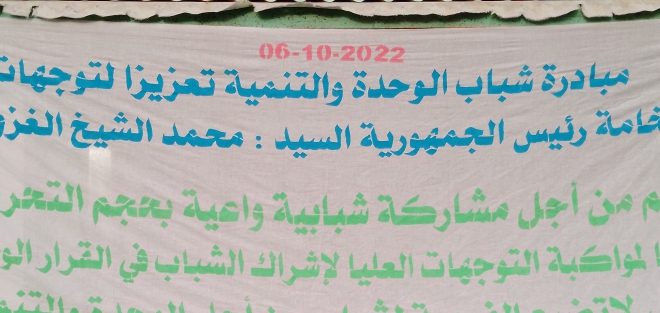 06-10-2022
مبادرة شباب الوحدة والتنمية تعزيزا لتوجهات
خامة رئيس الجمهورية السيد : محمد الشيخ الغزو
م من أجل مشاركة شبابية واعية بحجم التحر
ا لمواكبة التوجهات العليا لإشراك الشباب في القرار الو